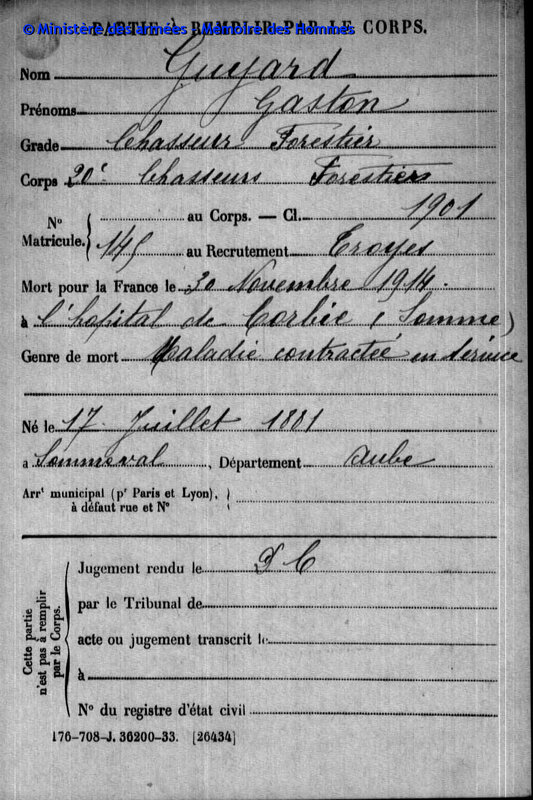 PARTIE à REMPLIR PAR LE CORPS.
© Ministère des armées - Mémoire des Hommes
Nom Guyard
Prénoms Gaston
Grade Chasseur Forestier
Corps 20e Chasseurs Forestiers
N° Matricule. { au Corps. — Cl. 1901
145 au Recrutement Troyes
Mort pour la France le 30 Novembre 1914.
à l'hopital de Corbie (Somme)
Genre de mort Maladie contractée en service
Né le 17 Juillet 1881
à Sommeval, Département Aube
Arrt municipal (pr Paris et Lyon),
à défaut rue et N°
Cette partie n'est pas à remplir par le Corps.
Jugement rendu le
par le Tribunal de
acte ou jugement transcrit le
à
N° du registre d'état civil
176-708-J. 36200-33. [26434]